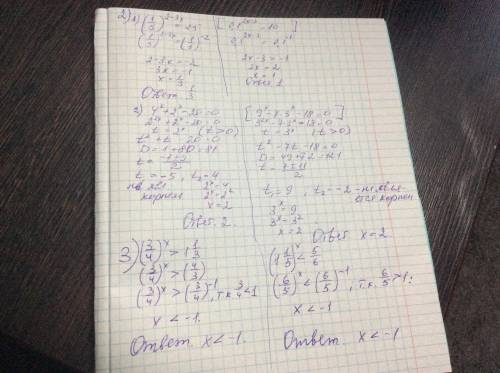 2) 1) (1/5)^(2-3x) = 25
(1/5)^(2-3x) = (1/5)^(-2)
2-3x = -2
x =
Ответ:
[0,1^(2x-3) = 10
0,1^(2x-3) = 0,1^(-1)
2x-3 = -1
2x = 2
x = 1
Ответ 1
2) 4^x + 2^x - 20 = 0
2^(2x) + 2^x - 20 = 0
t = 2^x (t>0)
t² + t - 20 = 0
D = 1+80 = 81
t =
t = -5, t₂ = 4
корнем
2^x = 4
2^x = 2²
x = 2
Ответ 2.
[9^x - 7·3^x - 18 = 0
t = 3^x (t>0)
t² - 7t - 18 = 0
D = 49+72 = 121
t = (7±11)/2
t₁ = 9, t₂ = -2 - не явля-
ется корнем
3^x = 9
3^x = 3²
x = 2
Ответ x = 2
3) (3/4)^x > 1 1/3
(3/4)^x > (4/3)
(3/4)^x > (3/4)^(-1), т.к 3/4 < 1
x < -1.
Ответ x < -1.
(1 1/5)^x < 5/6
(6/5)^x < (6/5)^(-1), т.к. 6/5 > 1:
x < -1
Ответ x < -1